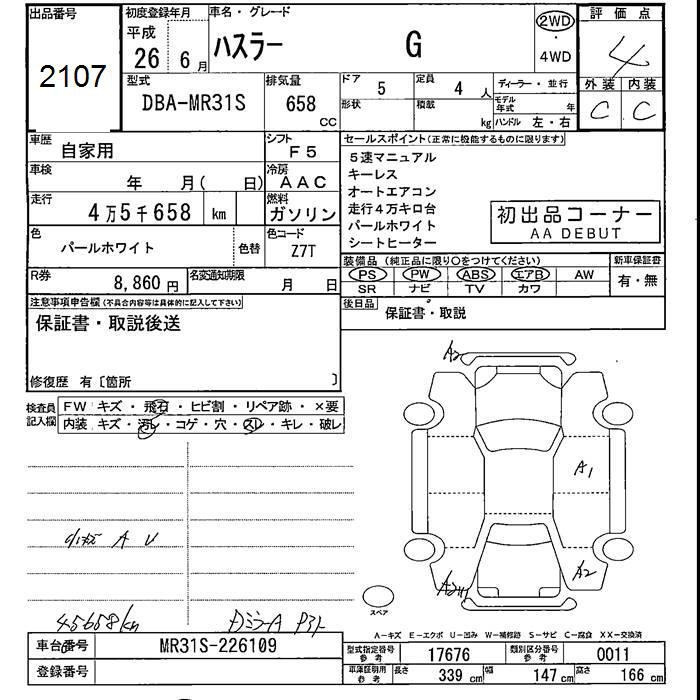 出品番号
2107
初度登録年月
平成
26 6月
車名・グレード
ハスラー G
2WD
・
4WD
評価点
4
外装 内装
C C
型式
DBA-MR31S
排気量
658 CC
ドア 5
定員 4 人
形状
積載 kg
ディーラー・並行
モデル年式 年
ハンドル 左・右
車歴
自家用
シフト
F5
車検
年 月( 日)
冷房
AAC
走行
4万5千658 km
燃料
ガソリン
色
パールホワイト
色替
色コード
Z7T
R券
8,860 円
名変通知期限
月 日
セールスポイント(正常に機能するものに限ります)
5速マニュアル
キーレス
オートエアコン
走行4万キロ台
パールホワイト
シートヒーター
初出品コーナー
AA DEBUT
装備品(純正品に限り○をつけてください)
PS PW ABS エアB AW
SR ナビ TV カワ
新車保証書
有・無
後日品
保証書・取説
注意事項申告欄(不具合内容等は具体的に記入して下さい)
保証書・取説後送
修復歴 有〔箇所 〕
検査員記入欄
FW キズ・飛石・ヒビ割・リペア跡・×要
内装 キズ・汚レ・コゲ・穴・スレ・キレ・破レ
A2
A1
A2
小キズ A U
45658km
DミラーA
スペア
A―キズ E―エクボ U―凹み W―補修跡 S―サビ C―腐食 XX―交換済
車台番号
MR31S-226109
登録番号
型式指定番号参考
17676
類別区分番号参考
0011
車庫証明用参考
長さ 339 cm
幅 147 cm
高さ 166 cm